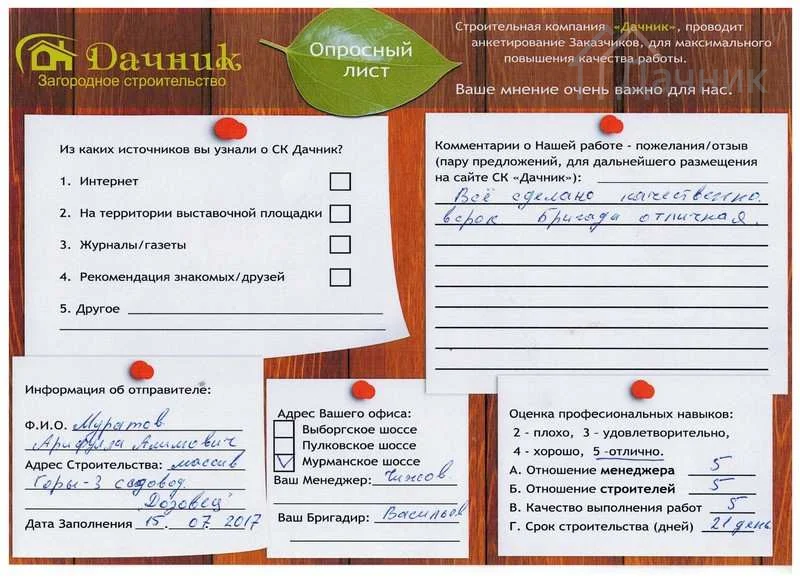 Дачник
Загородное строительство
Опросный
лист
Строительная компания «Дачник», проводит
анкетирование Заказчиков, для максимального
повышения качества работы.
Ваше мнение очень важно для нас.
Дачник
Из каких источников вы узнали о СК Дачник?
1. Интернет
2. На территории выставочной площадки
3. Журналы/газеты
4. Рекомендация знакомых/друзей
5. Другое
Комментарии о Нашей работе - пожелания/отзыв
(пару предложений, для дальнейшего размещения
на сайте СК «Дачник»):
Всё сделано качественно.
в срок Бригада отличная.
Информация об отправителе:
Ф.И.О. Муратов
Арифулла Алимович
Адрес Строительства: массив
Горы-3 садовод.
"Дозовец"
Дата Заполнения 15. 07. 2017
Адрес Вашего офиса:
Выборгское шоссе
Пулковское шоссе
Мурманское шоссе
Ваш Менеджер: Чижов.
Ваш Бригадир: Васильев
Оценка професиональных навыков:
2 - плохо, 3 - удовлетворительно,
4 - хорошо, 5 -отлично.
А. Отношение менеджера 5
Б. Отношение строителей 5
В. Качество выполнения работ 5
Г. Срок строительства (дней) 21 день